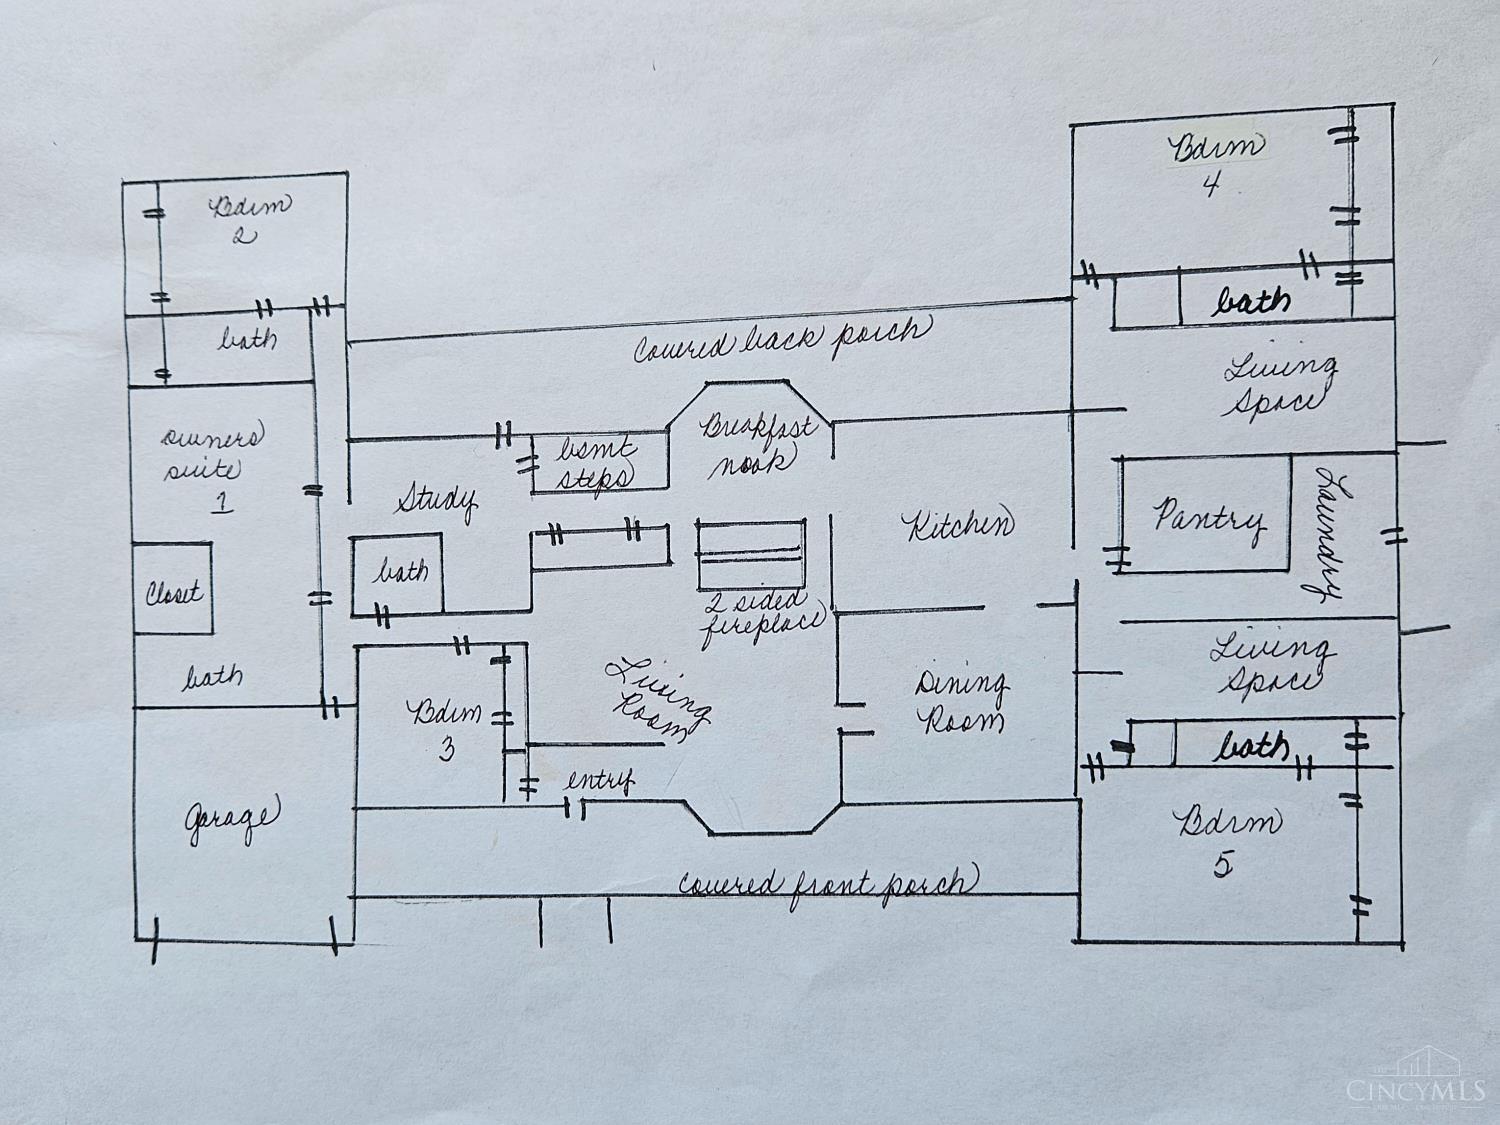 Bdrm
4
Bdrm
2
bath
bath
Covered back porch
Living
Space
Breakfast
nook
owners
suite
1
bsmt
steps
Study
Kitchen
Pantry
Laundry
bath
Closet
2 sided
fireplace
bath
Living
Room
Living
Space
Bdrm
3
Dining
Room
bath
entry
Garage
Bdrm
5
Covered front porch
CINCYMLS